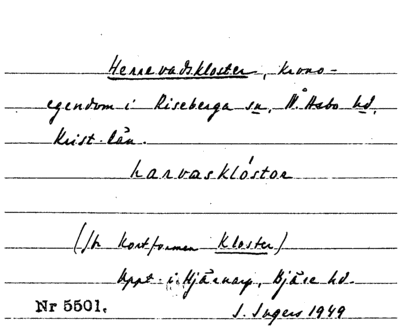 Herrevadskloster, krono-
egendom i Riseberga sn, N. Åsbo hd,
Krist. län.
harvasklóstor
(jfr kortformen Kloster)
Uppt. i Hjärnarp, Bjäre hd.
Nr 5501. I. Ingers 1949